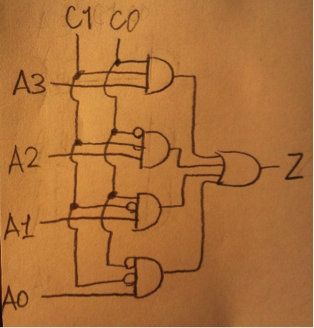 C1 C0
A3
A2
Z
A1
A0